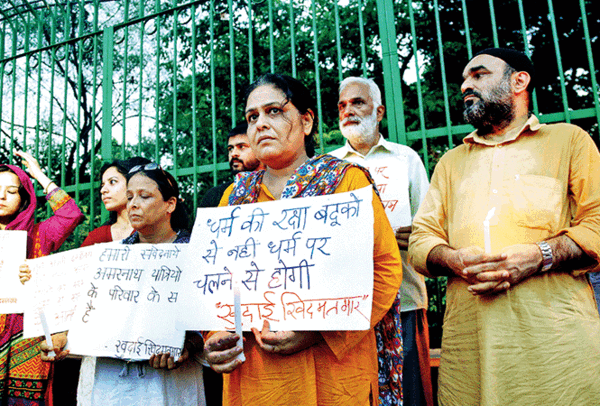 हमारी संवेदनाऐं
अमरनाथ यात्रियो
के परिवार के स
है
- खुदाई खिदमतगार
धर्म की रक्षा बदूको
से नहीं धर्म पर
चलने से होगी
"खुदाई खिदमतगार"